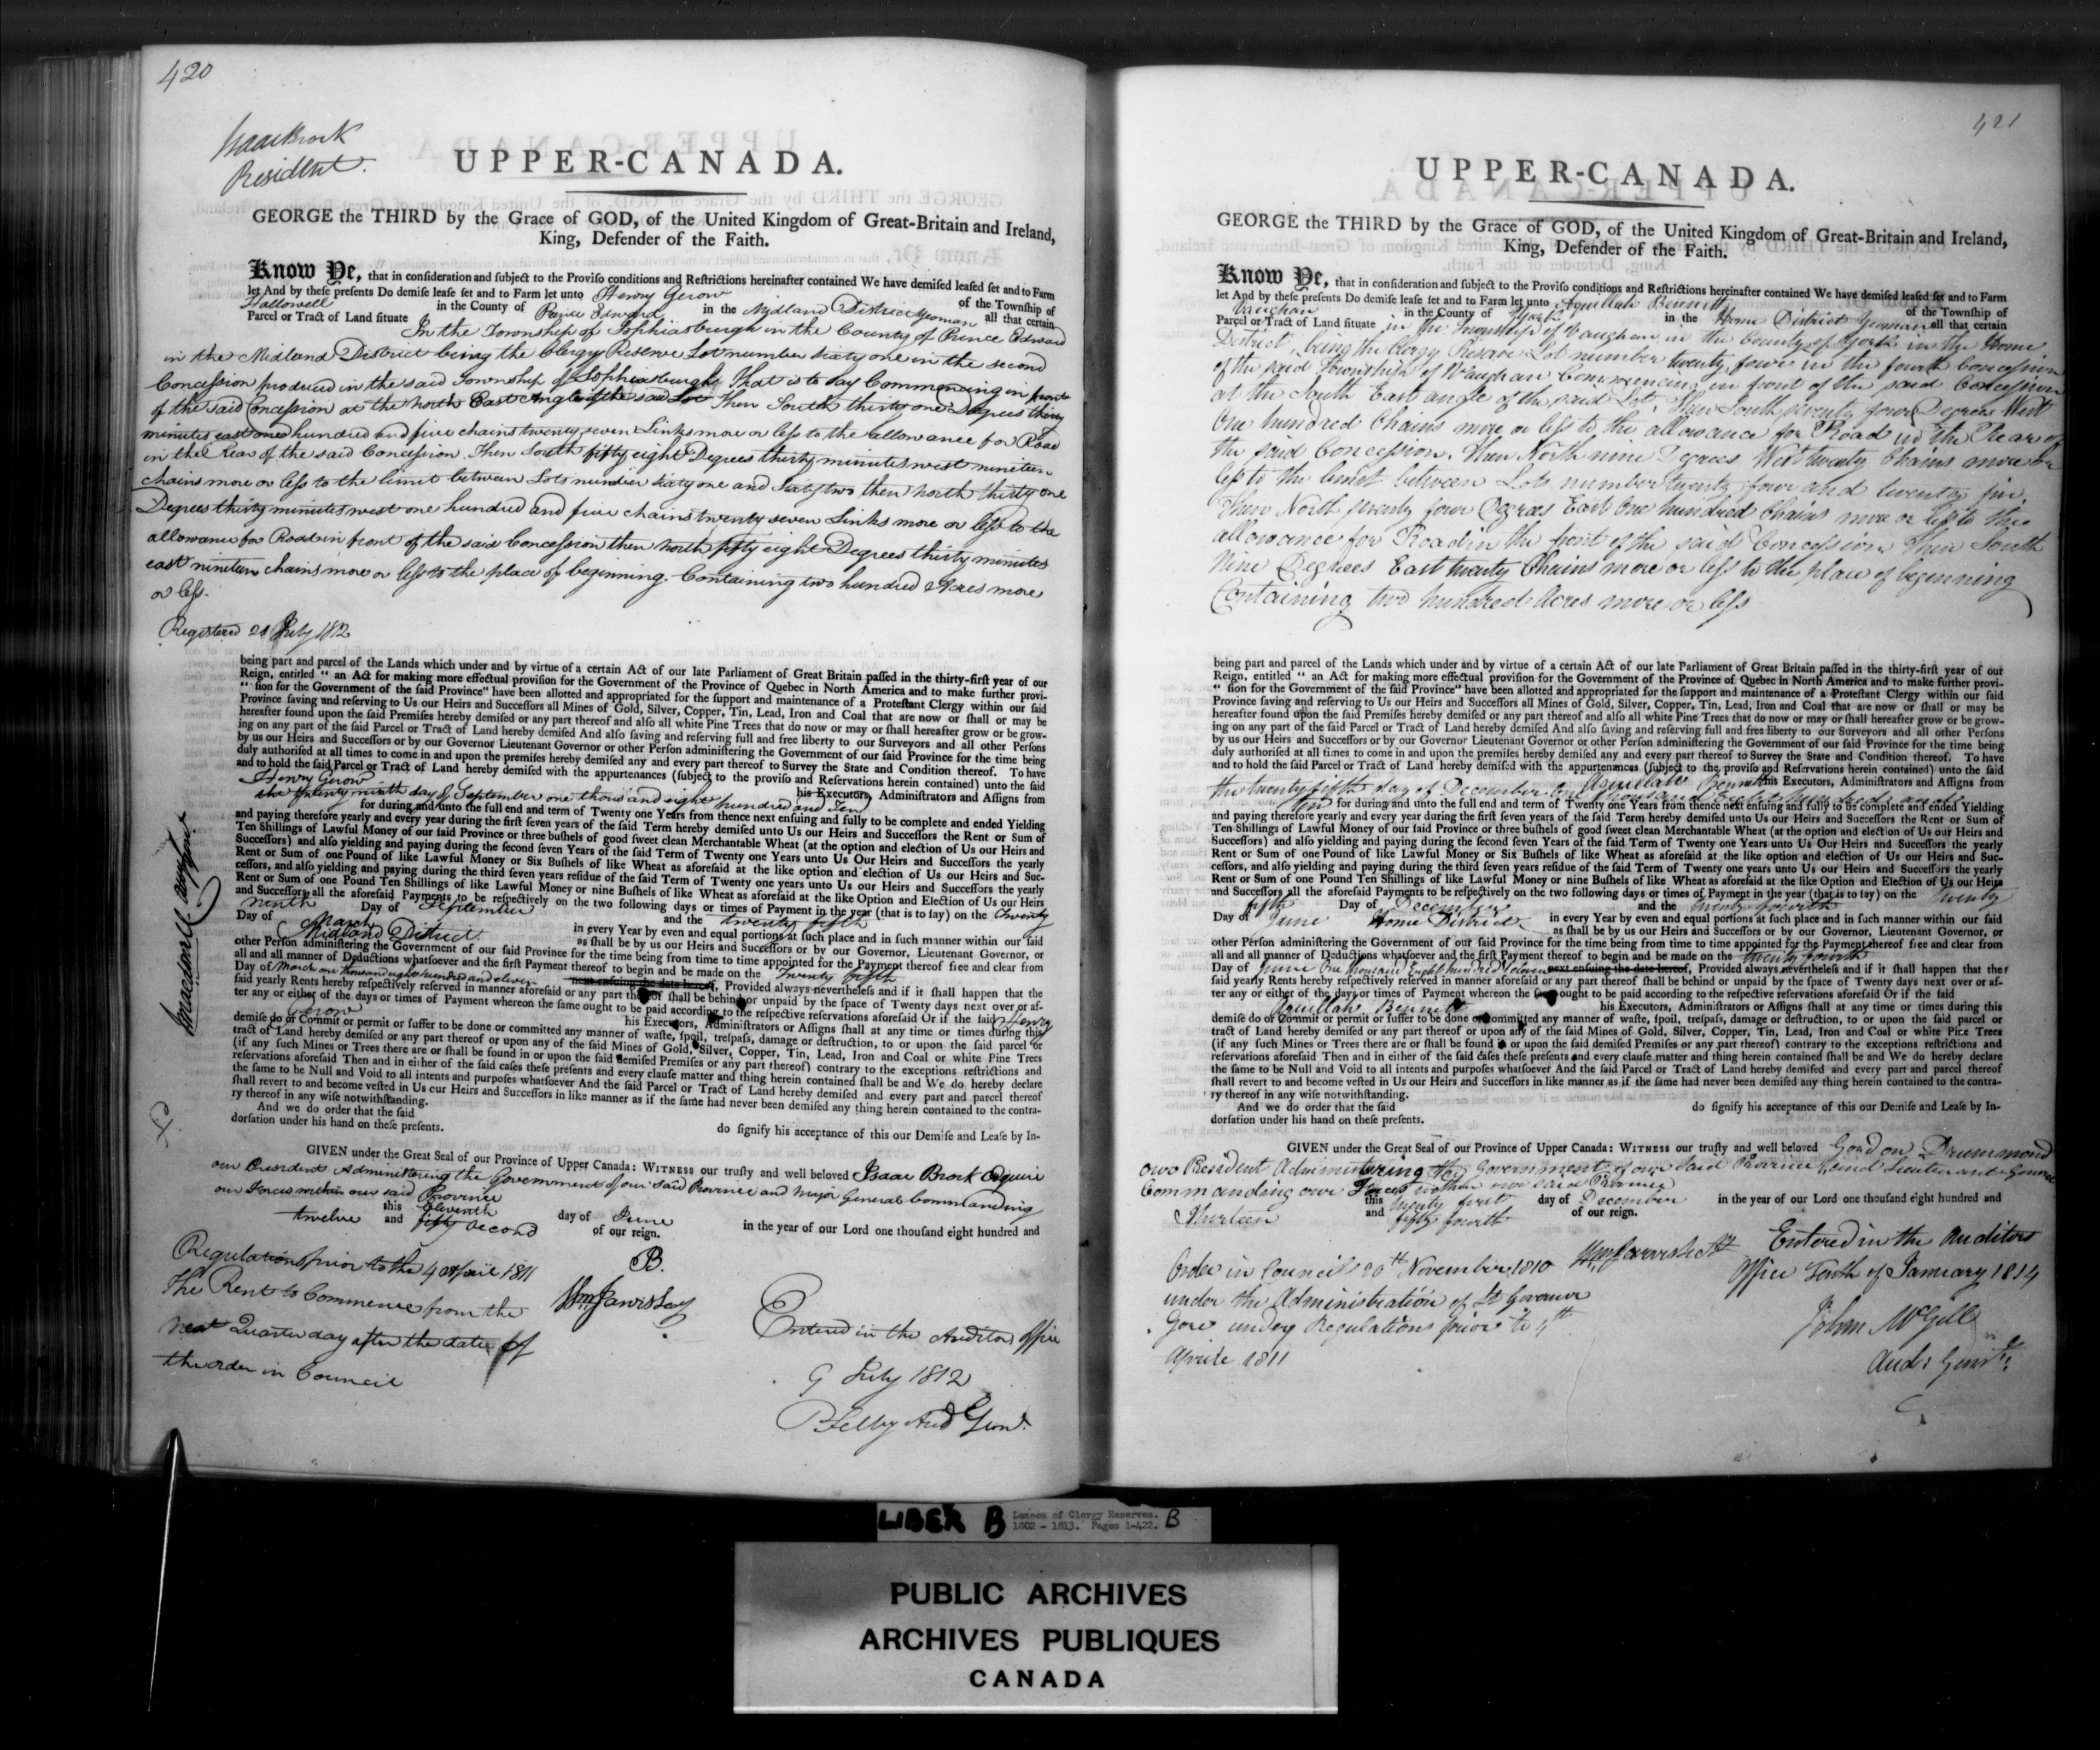 420
Isaac Brock
President.
UPPER-CANADA.
GEORGE the THIRD by the Grace of GOD, of the United Kingdom of Great-Britain and Ireland,
King, Defender of the Faith.
Know Ye, that in conſideration and ſubject to the Proviſo conditions and Reſtrictions hereinafter contained We have demiſed leaſed ſet and to Farm
let And by theſe preſents Do demiſe leaſe ſet and to Farm let unto Henry Gerow of the Township of
Hallowell in the County of Prince Edward in the Midland District Yeoman all that certain
Parcel or Tract of Land ſituate In the Township of Sophiasburgh in the County of Prince Edward
in the Midland District being the Clergy Reserve Lot number sixty one in the second
Concession produced in the said Township of Sophiasburgh That is to say Commencing in front
of the said Concession at the North East Angle of the said Lot Then South thirty one Degrees thirty
minutes east one hundred and five chains twenty seven Links more or less to the allowance for Road
in the Rear of the said Concession Then South fifty eight Degrees thirty minutes west nineteen
chains more or less to the limit between Lots number sixty one and sixty two then North thirty one
Degrees thirty minutes west one hundred and five chains twenty seven Links more or less to the
allowance for Road in front of the said Concession then North fifty eight Degrees thirty minutes
east nineteen chains more or less to the place of beginning. Containing two hundred Acres more
or less.
Registered 21 July 1812
being part and parcel of the Lands which under and by virtue of a certain Act of our late Parliament of Great Britain paſſed in the thirty-firſt year of our
Reign, entitled " an Act for making more effectual proviſion for the Government of the Province of Quebec in North America and to make further provi-
" ſion for the Government of the ſaid Province" have been allotted and appropriated for the ſupport and maintenance of a Proteſtant Clergy within our ſaid
Province ſaving and reſerving to Us our Heirs and Succeſſors all Mines of Gold, Silver, Copper, Tin, Lead, Iron and Coal that are now or ſhall or may be
hereafter found upon the ſaid Premiſes hereby demiſed or any part thereof and alſo all white Pine Trees that do now or may or ſhall hereafter grow or be grow-
ing on any part of the ſaid Parcel or Tract of Land hereby demiſed And alſo ſaving and reſerving full and free liberty to our Surveyors and all other Perſons
by us our Heirs and Succeſſors or by our Governor Lieutenant Governor or other Perſon adminiſtering the Government of our ſaid Province for the time being
duly authoriſed at all times to come in and upon the premiſes hereby demiſed any and every part thereof to Survey the State and Condition thereof. To have
and to hold the ſaid Parcel or Tract of Land hereby demiſed with the appurtenances (ſubject to the proviſo and Reſervations herein contained) unto the ſaid
Henry Gerow his Executors, Adminiſtrators and Aſſigns from
the twenty ninth day of September one thousand eight hundred and Ten
for during and unto the full end and term of Twenty one Years from thence next enſuing and fully to be complete and ended Yielding
and paying therefore yearly and every year during the firſt ſeven years of the ſaid Term hereby demiſed unto Us our Heirs and Succeſſors the Rent or Sum of
Ten Shillings of Lawful Money of our ſaid Province or three buſhels of good ſweet clean Merchantable Wheat (at the option and election of Us our Heirs and
Succeſſors) and alſo yielding and paying during the ſecond ſeven Years of the ſaid Term of Twenty one Years unto Us Our Heirs and Succeſſors the yearly
Rent or Sum of one Pound of like Lawful Money or Six Buſhels of like Wheat as aforeſaid at the like option and election of Us our Heirs and Suc-
ceſſors, and alſo yielding and paying during the third ſeven years reſidue of the ſaid Term of Twenty one years unto Us our Heirs and Succeſſors the yearly
Rent or Sum of one Pound Ten Shillings of like Lawful Money or nine Buſhels of like Wheat as aforeſaid at the like Option and Election of Us our Heirs
and Succeſſors all the aforeſaid Payments to be reſpectively on the two following days or times of Payment in the year (that is to ſay) on the Twenty
ninth Day of September and the twenty fifth
Day of March in every Year by even and equal portions at ſuch place and in ſuch manner within our ſaid
Midland District as ſhall be by us our Heirs and Succeſſors or by our Governor, Lieutenant Governor, or
other Perſon adminiſtering the Government of our ſaid Province for the time being from time to time appointed for the Payment thereof free and clear from
all and all manner of Deductions whatſoever and the firſt Payment thereof to begin and be made on the Twenty fifth
Day of March one thousand eight hundred and eleven next enſuing the date hereof, Provided always nevertheleſs and if it ſhall happen that the
ſaid yearly Rents hereby reſpectively reſerved in manner aforeſaid or any part thereof ſhall be behind or unpaid by the ſpace of Twenty days next over or af-
ter any or either of the days or times of Payment whereon the ſame ought to be paid according to the reſpective reſervations aforeſaid Or if the ſaid Henry
Gerow his Executors, Adminiſtrators or Aſſigns ſhall at any time or times during this
demiſe do or Commit or permit or ſuffer to be done or committed any manner of waſte, ſpoil, treſpaſs, damage or deſtruction, to or upon the ſaid parcel or
tract of Land hereby demiſed or any part thereof or upon any of the ſaid Mines of Gold, Silver, Copper, Tin, Lead, Iron and Coal or white Pine Trees
(if any ſuch Mines or Trees there are or ſhall be found in or upon the ſaid demiſed Premiſes or any part thereof) contrary to the exceptions reſtrictions and
reſervations aforeſaid Then and in either of the ſaid caſes theſe preſents and every clauſe matter and thing herein contained ſhall be and We do hereby declare
the ſame to be Null and Void to all intents and purpoſes whatſoever And the ſaid Parcel or Tract of Land hereby demiſed and every part and parcel thereof
ſhall revert to and become veſted in Us our Heirs and Succeſſors in like manner as if the ſame had never been demiſed any thing herein contained to the contra-
ry thereof in any wiſe notwithſtanding.
And we do order that the ſaid do ſignify his acceptance of this our Demiſe and Leaſe by In-
dorſation under his hand on theſe preſents.
GIVEN under the Great Seal of our Province of Upper Canada: WITNESS our truſty and well beloved Isaac Brock Esquire
our President Administering the Government of our said Province and Major General Commanding
our Forces within our said Province
this Eleventh day of June in the year of our Lord one thouſand eight hundred and
twelve and fifty second of our reign.
B.
Wm Jarvis Secy
Regulations prior to the 4 April 1811
The Rent to Commence from the
next Quarter day after the date of
the order in Council
Entered in the Auditors Office
9 July 1812
P Selby Aud Genl.
J Macdonell. Atty Genl
421
UPPER-CANADA.
GEORGE the THIRD by the Grace of GOD, of the United Kingdom of Great-Britain and Ireland,
King, Defender of the Faith.
Know Ye, that in conſideration and ſubject to the Proviſo conditions and Reſtrictions hereinafter contained We have demiſed leaſed ſet and to Farm
let And by theſe preſents Do demiſe leaſe ſet and to Farm let unto Aquillah Bennett of the Township of
Vaughan in the County of York in the Home District Yeoman all that certain
Parcel or Tract of Land ſituate in the Township of Vaughan in the County of York in the Home
District, being the Clergy Reserve Lot number twenty four in the fourth concession
of the said Township of Vaughan Commencing in front of the said Concession
at the South East angle of the said Lot, Then South seventy four Degrees West
One hundred Chains more or less to the allowance for Road in the Rear of
the said Concession. Then North nine Degrees West twenty Chains more or
less to the limit between Lots number twenty four and twenty five,
Then North seventy four Degrees East One hundred Chains more or less to the
allowance for Road in the front of the said Concession Then South
Nine Degrees East twenty Chains more or less to the place of beginning
Containing two hundred Acres more or less
being part and parcel of the Lands which under and by virtue of a certain Act of our late Parliament of Great Britain paſſed in the thirty-firſt year of our
Reign, entitled " an Act for making more effectual proviſion for the Government of the Province of Quebec in North America and to make further provi-
" ſion for the Government of the ſaid Province" have been allotted and appropriated for the ſupport and maintenance of a Proteſtant Clergy within our ſaid
Province ſaving and reſerving to Us our Heirs and Succeſſors all Mines of Gold, Silver, Copper, Tin, Lead, Iron and Coal that are now or ſhall or may be
hereafter found upon the ſaid Premiſes hereby demiſed or any part thereof and alſo all white Pine Trees that do now or may or ſhall hereafter grow or be grow-
ing on any part of the ſaid Parcel or Tract of Land hereby demiſed And alſo ſaving and reſerving full and free liberty to our Surveyors and all other Perſons
by us our Heirs and Succeſſors or by our Governor Lieutenant Governor or other Perſon adminiſtering the Government of our ſaid Province for the time being
duly authoriſed at all times to come in and upon the premiſes hereby demiſed any and every part thereof to Survey the State and Condition thereof. To have
and to hold the ſaid Parcel or Tract of Land hereby demiſed with the appurtenances (ſubject to the proviſo and Reſervations herein contained) unto the ſaid
Aquillah Bennett his Executors, Adminiſtrators and Aſſigns from
the twenty fifth day of December One thousand Eight hundred and
ten for during and unto the full end and term of Twenty one Years from thence next enſuing and fully to be complete and ended Yielding
and paying therefore yearly and every year during the firſt ſeven years of the ſaid Term hereby demiſed unto Us our Heirs and Succeſſors the Rent or Sum of
Ten Shillings of Lawful Money of our ſaid Province or three buſhels of good ſweet clean Merchantable Wheat (at the option and election of Us our Heirs and
Succeſſors) and alſo yielding and paying during the ſecond ſeven Years of the ſaid Term of Twenty one Years unto Us Our Heirs and Succeſſors the yearly
Rent or Sum of one Pound of like Lawful Money or Six Buſhels of like Wheat as aforeſaid at the like option and election of Us our Heirs and Suc-
ceſſors, and alſo yielding and paying during the third ſeven years reſidue of the ſaid Term of Twenty one years unto Us our Heirs and Succeſſors the yearly
Rent or Sum of one Pound Ten Shillings of like Lawful Money or nine Buſhels of like Wheat as aforeſaid at the like Option and Election of Us our Heirs
and Succeſſors all the aforeſaid Payments to be reſpectively on the two following days or times of Payment in the year (that is to ſay) on the twenty
fifth Day of December and the twenty fourth
Day of June in every Year by even and equal portions at ſuch place and in ſuch manner within our ſaid
Home District as ſhall be by us our Heirs and Succeſſors or by our Governor, Lieutenant Governor, or
other Perſon adminiſtering the Government of our ſaid Province for the time being from time to time appointed for the Payment thereof free and clear from
all and all manner of Deductions whatſoever and the firſt Payment thereof to begin and be made on the twenty fourth
Day of June One thousand Eight hundred & eleven next enſuing the date hereof, Provided always nevertheleſs and if it ſhall happen that the
ſaid yearly Rents hereby reſpectively reſerved in manner aforeſaid or any part thereof ſhall be behind or unpaid by the ſpace of Twenty days next over or af-
ter any or either of the days or times of Payment whereon the ſame ought to be paid according to the reſpective reſervations aforeſaid Or if the ſaid
Aquillah Bennett his Executors, Adminiſtrators or Aſſigns ſhall at any time or times during this
demiſe do or Commit or permit or ſuffer to be done or committed any manner of waſte, ſpoil, treſpaſs, damage or deſtruction, to or upon the ſaid parcel or
tract of Land hereby demiſed or any part thereof or upon any of the ſaid Mines of Gold, Silver, Copper, Tin, Lead, Iron and Coal or white Pine Trees
(if any ſuch Mines or Trees there are or ſhall be found in or upon the ſaid demiſed Premiſes or any part thereof) contrary to the exceptions reſtrictions and
reſervations aforeſaid Then and in either of the ſaid caſes theſe preſents and every clauſe matter and thing herein contained ſhall be and We do hereby declare
the ſame to be Null and Void to all intents and purpoſes whatſoever And the ſaid Parcel or Tract of Land hereby demiſed and every part and parcel thereof
ſhall revert to and become veſted in Us our Heirs and Succeſſors in like manner as if the ſame had never been demiſed any thing herein contained to the contra-
ry thereof in any wiſe notwithſtanding.
And we do order that the ſaid do ſignify his acceptance of this our Demiſe and Leaſe by In-
dorſation under his hand on theſe preſents.
GIVEN under the Great Seal of our Province of Upper Canada: WITNESS our truſty and well beloved Gordon Drummond
our President Administering the Government of our said Province and Lieutenant General
Commanding our Forces within our said Province
this twenty first day of December in the year of our Lord one thouſand eight hundred and
thirteen and fifty fourth of our reign.
Order in Council 20th November 1810
under the Administration of Lt Governor
Gore under Regulations prior to 4th
Aprile 1811
Wm Jarvis Secty
Entered in the Auditors
Office Tenth of January 1814
John McGill
Aud: Genl
LIBER B Leases of Clergy Reserves. B
1802 - 1813. Pages 1-422.
PUBLIC ARCHIVES
ARCHIVES PUBLIQUES
CANADA